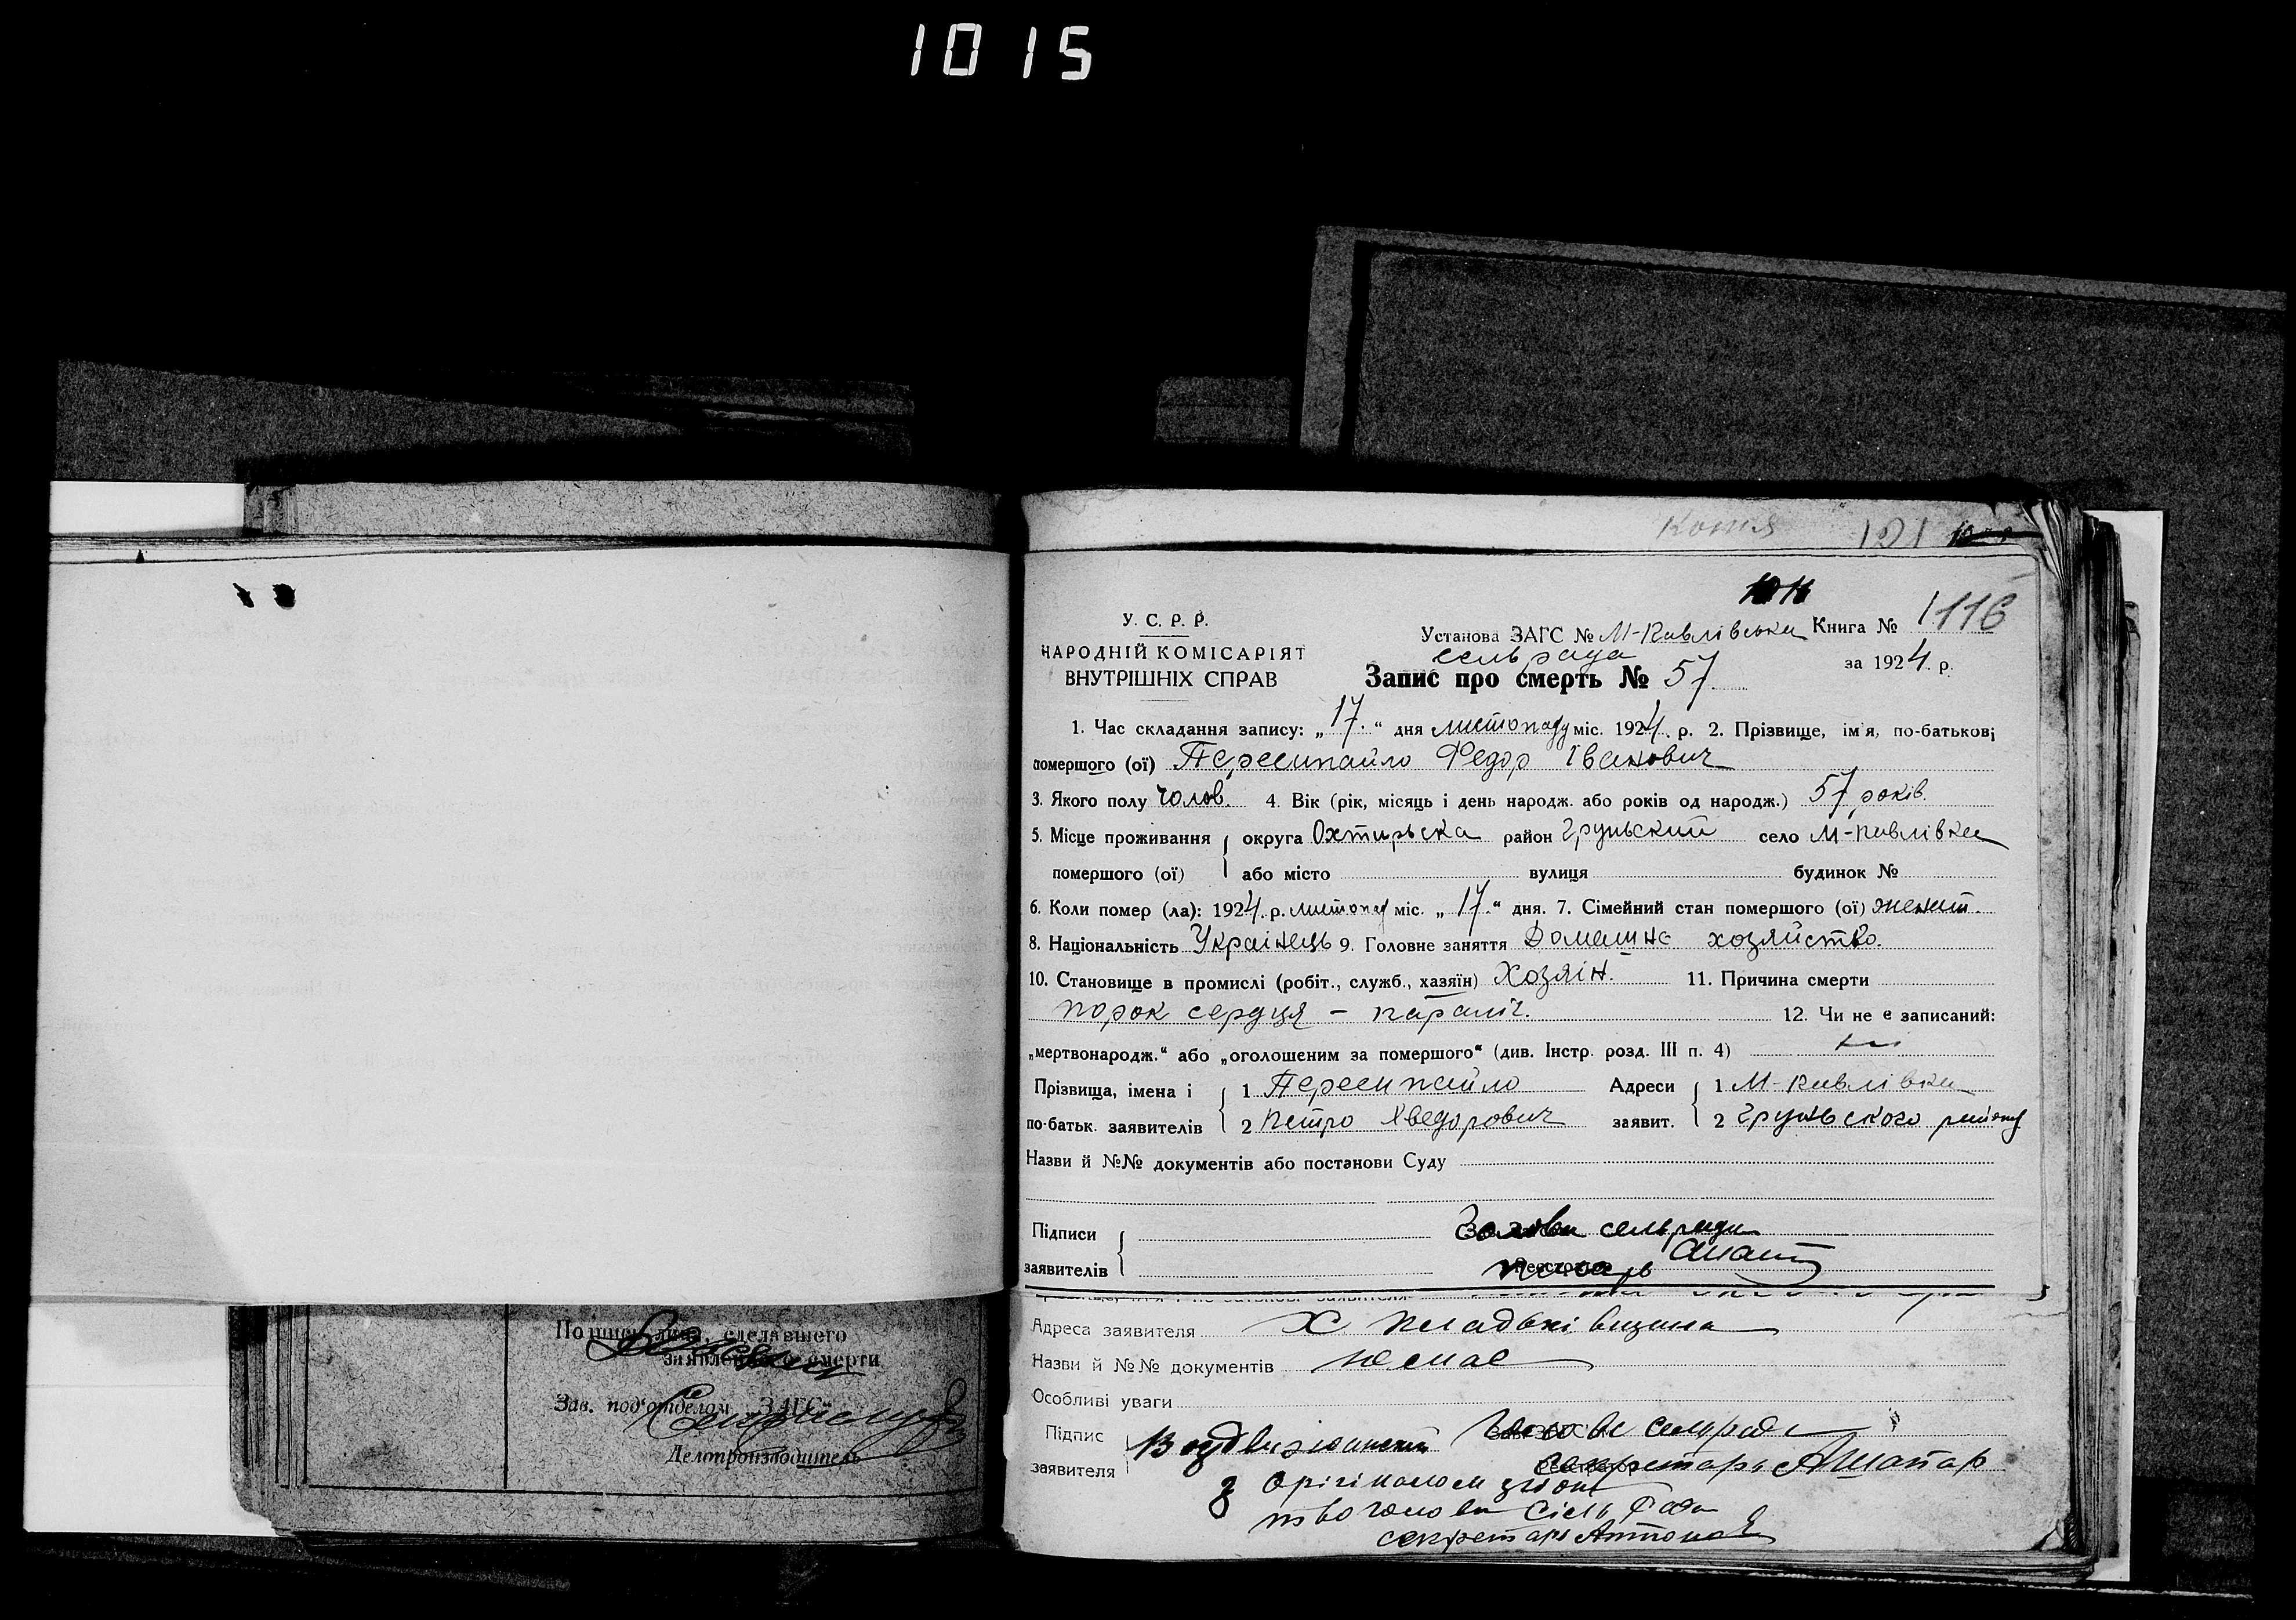 1015
Копія 121
1016
1116
У. С. Р. Р.
НАРОДНІЙ КОМІСАРІЯТ
ВНУТРІШНІХ СПРАВ
Установа ЗАГС № М-Павлівська Книга №
сельрада
за 1924 р.
Запис про смерть № 57
1. Час складання запису: „17.“ дня листопаду міс. 1924 р. 2. Прізвище, імя, по-батькові
помершого (ої) Пересипайло Федор Іванович
3. Якого полу чолов. 4. Вік (рік, місяць і день народж. або років од народж.) 57 років.
5. Місце проживання округа Охтирьска район Груньский село М-Павлівка
помершого (ої) або місто вулиця будинок №
6. Коли помер (ла): 1924 р. листопад міс. „17.“ дня. 7. Сімейний стан помершого (ої) женат.
8. Національність Українець 9. Головне заняття Домашнє хозяйство.
10. Становище в промислі (робіт., служб., хазяїн) Хозяїн. 11. Причина смерти
порок сердця – параліч. 12. Чи не є записаний:
„мертвонародж.“ або „оголошеним за помершого“ (див. Інстр. розд. III п. 4) ні
Прізвища, імена і 1 Пересипайло Адреси 1 М-Павлівка
по-батьк. заявителів 2 Петро Хведорович заявит. 2 Груньского району
Назви й №№ документів або постанови Суду
Підписи
Голова сельради
заявителів
Адреса заявителя Х
Назви й №№ документів немає
Особливі уваги
Підпис
заявителя
секретарь
З орігіналом згідно
голови Сіль Ради
секретарь
заявление о смерти
Зав. под'отделом „ЗАГС“
Делопроизводитель